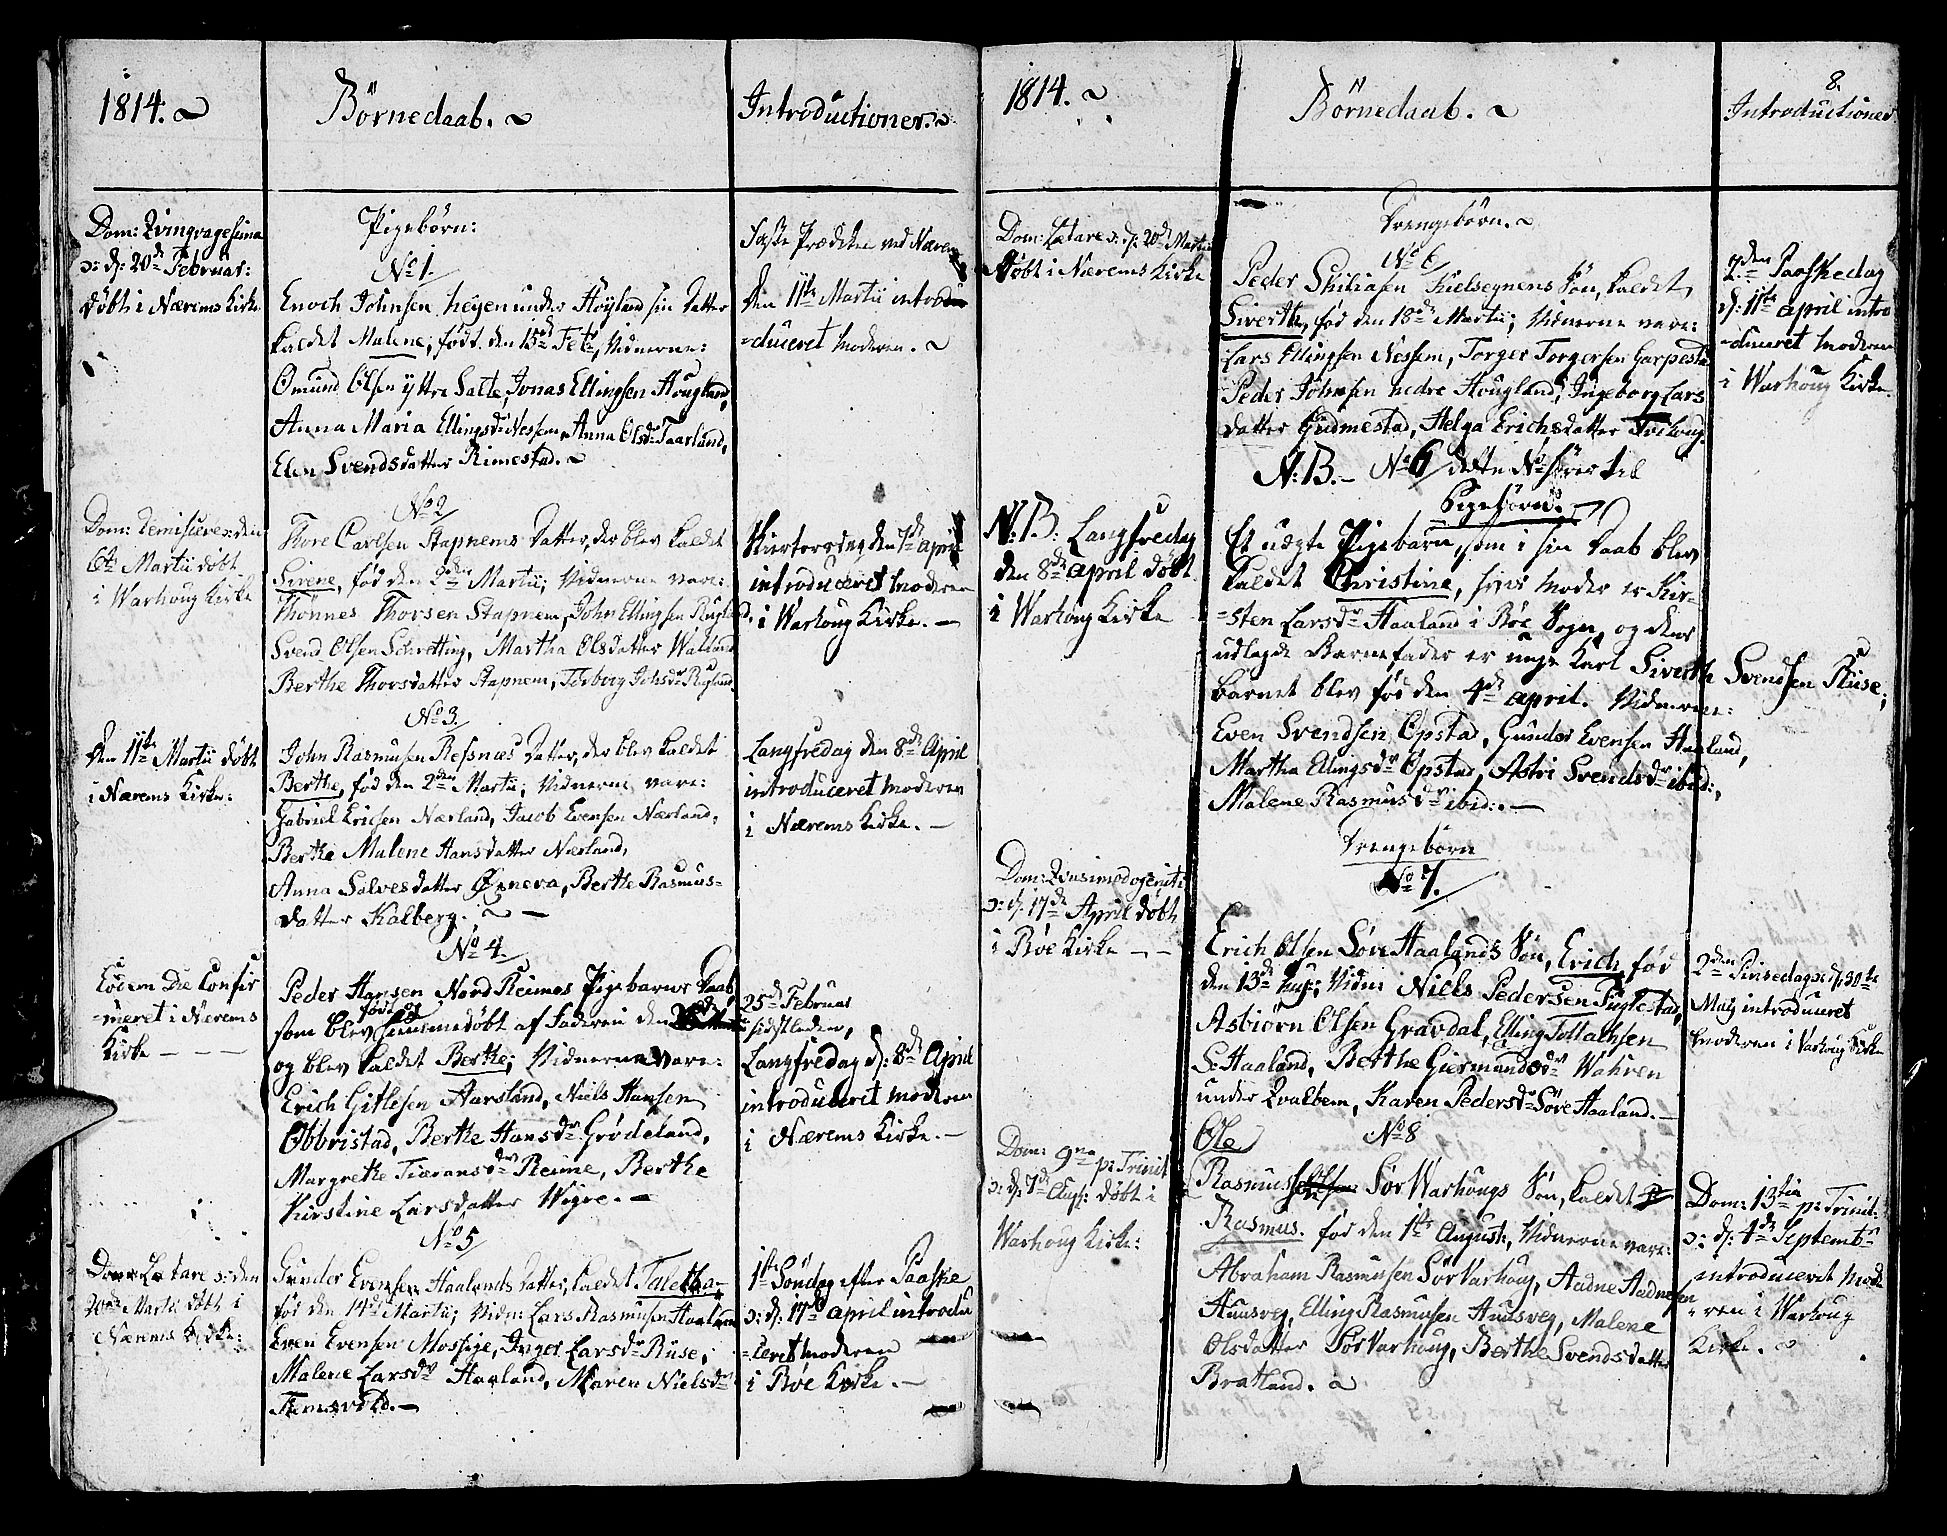 1814.
Börnedaab.
Introductioner.
Dom: Qvinqvagesima
ɔ: d: 20de Februar:
döbt i Nærems Kirke
Pigebörn:
No 1.
Enoch Johnsen Heyen under Höyland sin Datter
kaldet Malene; födt den 13de Febr, Vidnerne:
Omund Olsen yttre Salte, Jonas Ellingsen Hougland,
Anna Maria Ellingsdr Nessem, Anna Olsdr Taarland,
Elen Svendsdatter Rimestad.
Faste Prædiken ved Nærem
Den 11te Martii intro
-duceret Moderen.
Dom: Remisere ɔ: den
6te Martii döbt
i Warhoug Kirke
No 2
Tore Carlsen Stapnems Datter, der blev kaldet
Sirene, föd den 2den Martii; Vidnerne vare:
Thönnes Thorsen Stapnem, John Ellingsen Rugland,
Svend Olsen Schretting, Martha Olsdatter Walland
Berthe Thorsdatter Stapnem, Torborg Johsdr Rugland.
Skiertorsdag den 7de April
introduceret Moderen
i Warhoug Kirke.
Den 11te Martii döbt
i Nærems Kirke:
No 3.
John Rasmusen Refsnæs Datter, der blev kaldet
Berthe, föd den 2den Martii; Vidnerne vare:
Gabriel Ericsen Nærland, Jacob Evensen Nærland,
Berthe Malene Hansdatter Nærland,
Anna Salvesdatter Oxneva, Berthe Rasmus-
datter Kalberg.
Langfredag den 8de April
introduceret Moderen
i Nærems Kirke.
Eodem Die Confir
-meret i Nærems
Kirke
No 4.
Peder Hansen Nord Reimes Pigebarns Daab,
som blev födt hiemmedöbt af Faderen den
og blev kaldet Berthe; Vidnerne vare:
Erich Gitlesen Aarsland, Niels Hansen
Obbristad, Berthe Hansdr Grödeland,
Margrethe Tiæransdr Reime, Berthe
Kirstine Larsdatter Wigre.
25de Februar
sidstleden,
Langfredag d: 8de April
introduceret Moderen
i Nærems Kirke.
Dom: Lætare ɔ: den
20de Martii döbt i
Nærems Kirke:
No 5
Gunder Evensen Haalands Datter; kaldet Taletha;
föd den 14de Martii; Vidn: Lars Rasmusen Haaland
Even Evensen Mossige, Inger Larsdr Ruse,
Malene Larsdr Haaland, Maren Nielsdr
Temsvold.
1ste Söndag efter Paaske
ɔ: d: 17de April introdu
-ceret Moderen
i Röe Kirke.
1814.
Börnedaab.
8.
Introductioner
Dom: Lætare ɔ: d: 20de Martii
döbt i Nærems Kirke
Drengebörn.
No 6
Peder Skiliasen Kielsegnens Sön, kaldet
Siverth, föd den 18de Martii; Vidnerne vare:
Lars Ellingsen Nessem, Torger Torgersen Garpestad
Peder Johnsen nedre Hougland, Ingeborg Lars
datter Gudmestad, Helga Erichsdatter Tvihoug.
2den Paaskedag
d: 11te April intro
-duceret Moderen
i Warhoug Kirke.
N:B. No 6 dette No förer til
Pigebörn.
N:B: Langfredag
den 8de April döbt
i Warhoug Kirke
Et uægte Pigebarn, som i sin Daab blev
kaldet Christine, hvis Moder er Kir-
-sten Larsdr Haaland i Röe Sogn, og dens
udlagde Barnefader er unge Karl Siverth Svendsen Ruse;
Barnet blev föd den 4de April. Vidnerne:
Even Svendsen Opstad, Gunder Evensen Haaland,
Martha Ellingsdr Opstad, Astri Svendsdr ibid:,
Malene Rasmusdr ibid:.
Drengebörn
No 7.
Dom: Qvasimodogeniti
ɔ: d: 17de April döbt
i Röe Kirke
Erich Olsen Söre Haalands Sön, Erich, föd
den 13de huj:; Vidn: Niels Pedersen Fuglestad,
Asbiörn Olsen Gravdal, Elling Tollachsen
S: Haaland, Berthe Giermundsdr Wahren
under Qvalbem, Karen Pedersdr Söre Haaland.
2den Pinsedag ɔ: d: 30te
Maij introduceret
Moderen i Varhoug Kirke
Dom: 9na p: Trinit
ɔ: d: 7de Aug: döbt i
Warhoug Kirke:
No 8
Ole
Rasmussen Sör Warhougs Sön, kaldet
Rasmus. föd den 1ste August, Vidnerne vare:
Abraham Rasmussen Sör Varhoug, Aadne Aadnesen
Huusveg, Elling Rasmusen Huusveg, Malene
Olsdatter Sör Varhoug, Berthe Svendsdatter
Bratland.
Dom: 13tia
p: Trinit:
ɔ: d: 4de Septembr
introduceret Mode
-ren i Warhoug
Kirke.